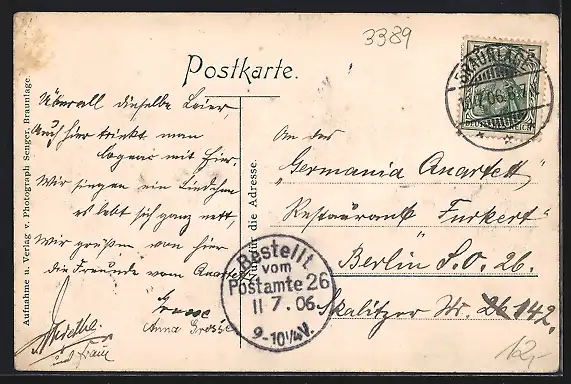 3389
Postkarte.
BRAUNLAGE
7.06.
DEUTSCHES REICH
Aufnahme u. Verlag v. Photograph Senger, Braunlage.
Überall dieselbe Leier,
Auch hier trinkt man
Cognac mit Eier.
Wir singen ein Liedchen
es lebt sich ganz nett,
Wir grüßen von hier
die Freunde vom Quartett
Grosse
Anna Grosse
und Frau
Nur für die Adresse.
An das
"Germania Quartett"
Restaurant "Funkert"
Berlin S.O. 26.
Skalitzer Str. 26 142.
Bestellt
vom
Postamte 26
11 7. 06.
9-10¼V.
12,-